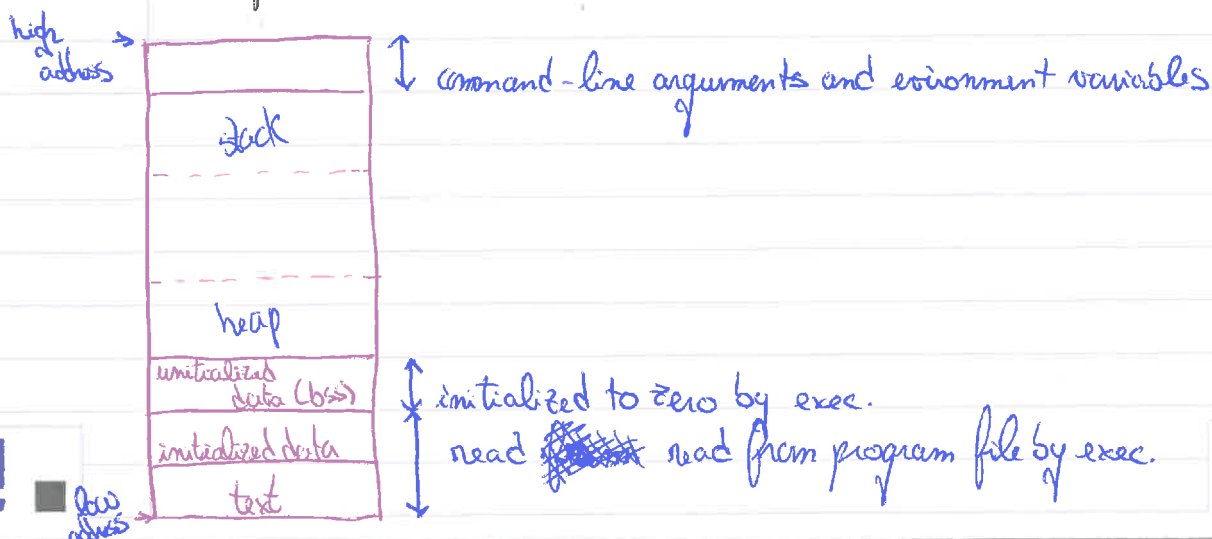 high
address
command-line arguments and evironment variables
stack
heap
unitialized
data (bss)
initialized to zero by exec.
initialized data
read read from program file by exec.
text
low
address